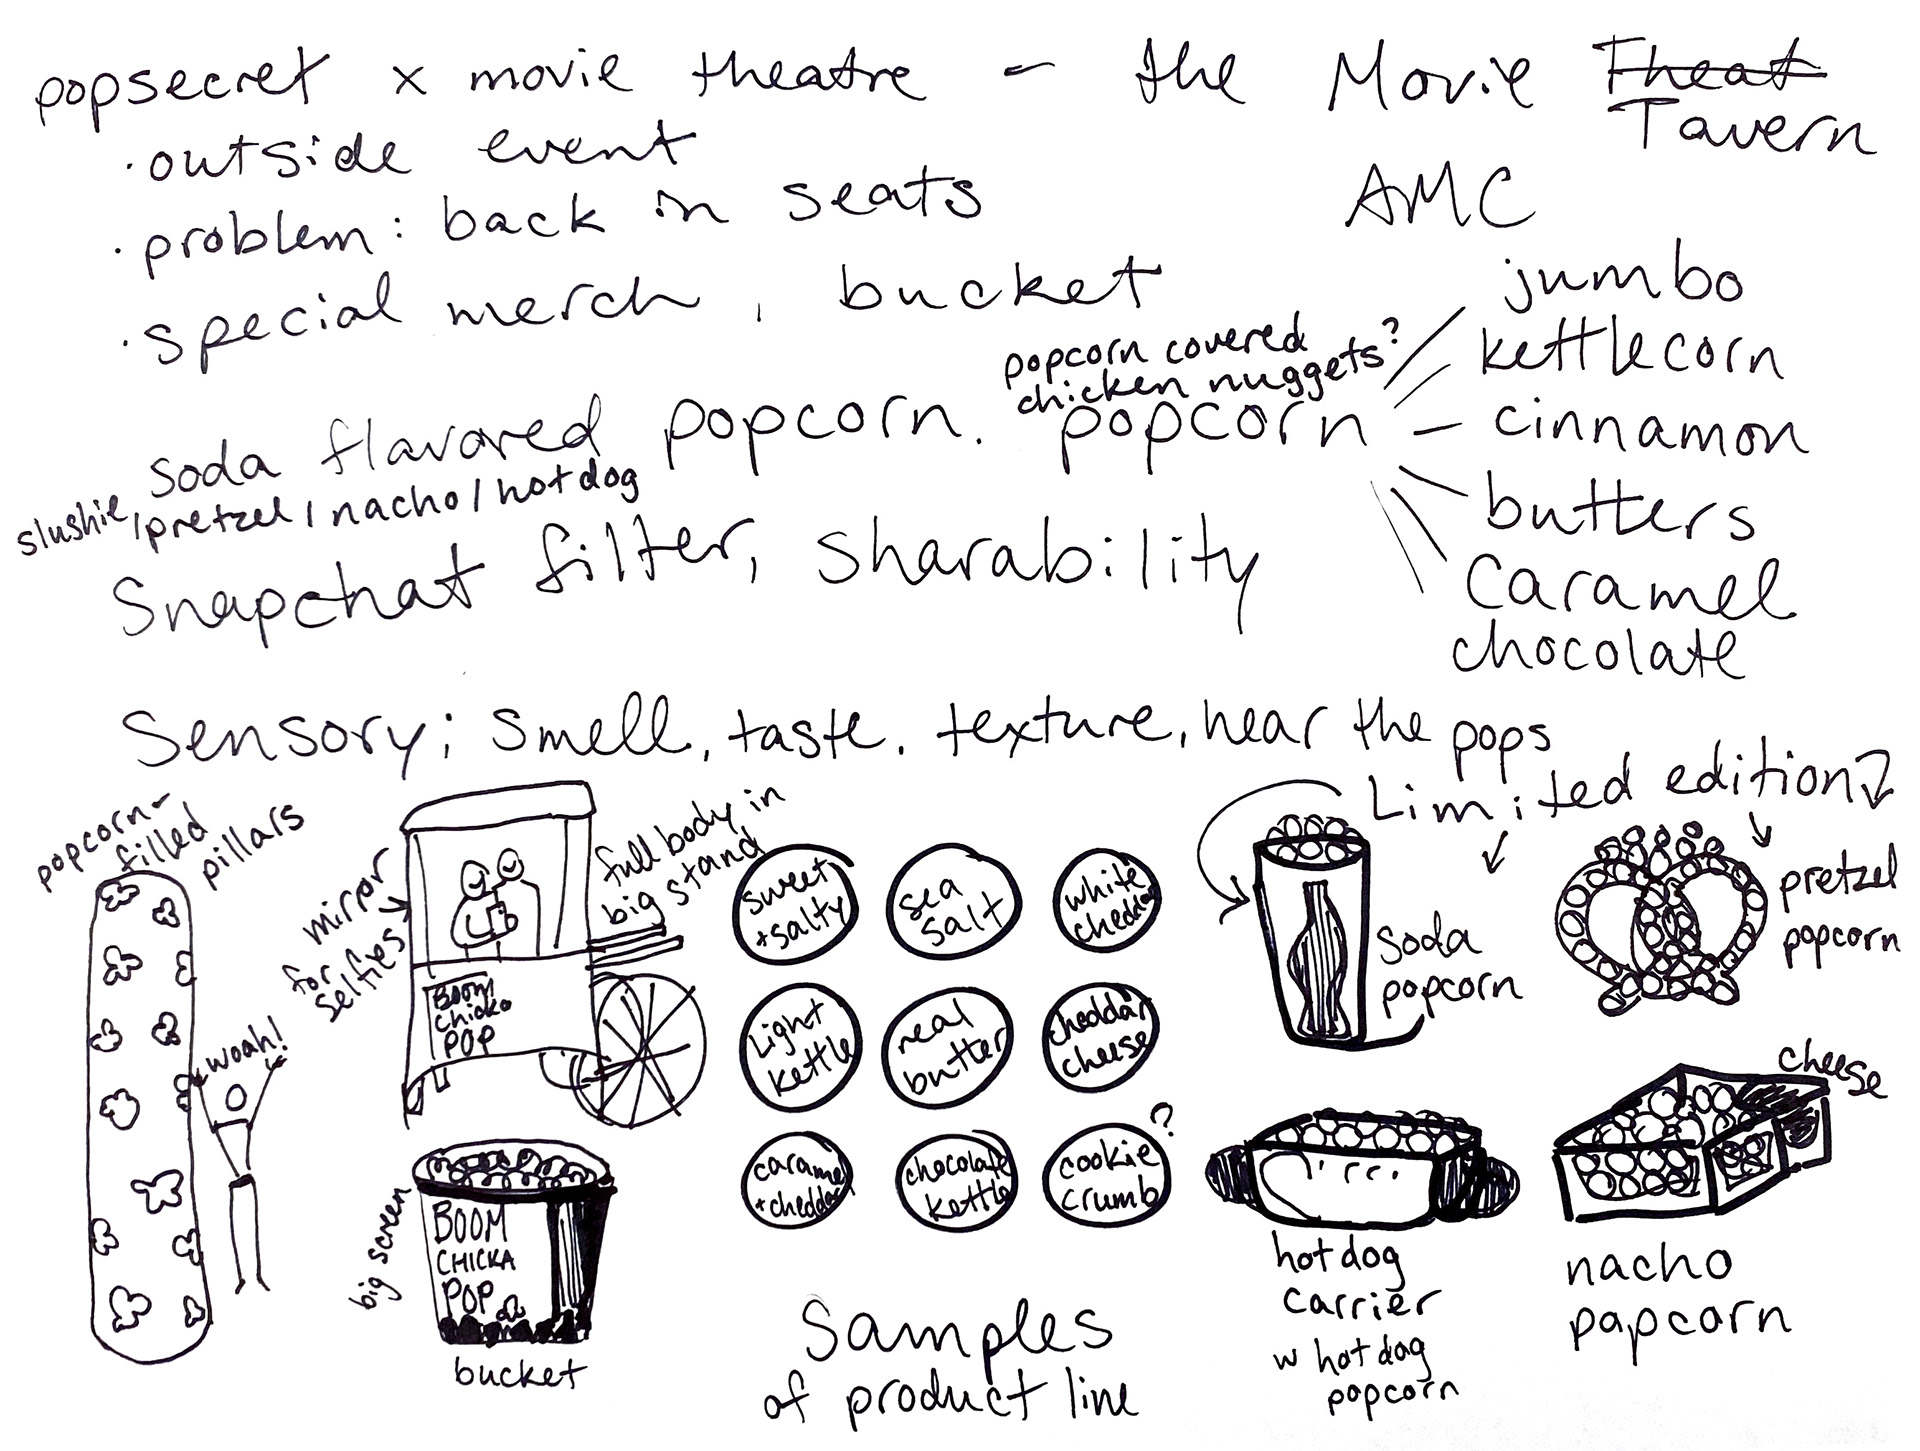 popsecret x movie theatre - the Movie Theat
Tavern
AMC
·outside event
·problem: back in seats
·special merch, bucket
popcorn covered
chicken nuggets?
popcorn
jumbo
kettlecorn
cinnamon
butters
caramel
chocolate
soda flavored popcorn.
slushie/pretzel/nacho/hotdog
Snapchat filter, sharability
Sensory; smell, taste. texture, hear the pops
popcorn-
filled
pillars
woah!
mirror
for selfies
full body in
big stand
BOOM
Chicka
POP
big screen
BOOM
CHICKA
POP
bucket
sweet
+salty
sea
salt
white
cheddar
Light
kettle
real
butter
cheddar
cheese
caramel
+cheddar
chocolate
kettle
cookie
crumb
?
Samples
of product line
Limited edition?
soda
popcorn
pretzel
popcorn
hotdog
carrier
w hotdog
popcorn
cheese
nacho
papcorn